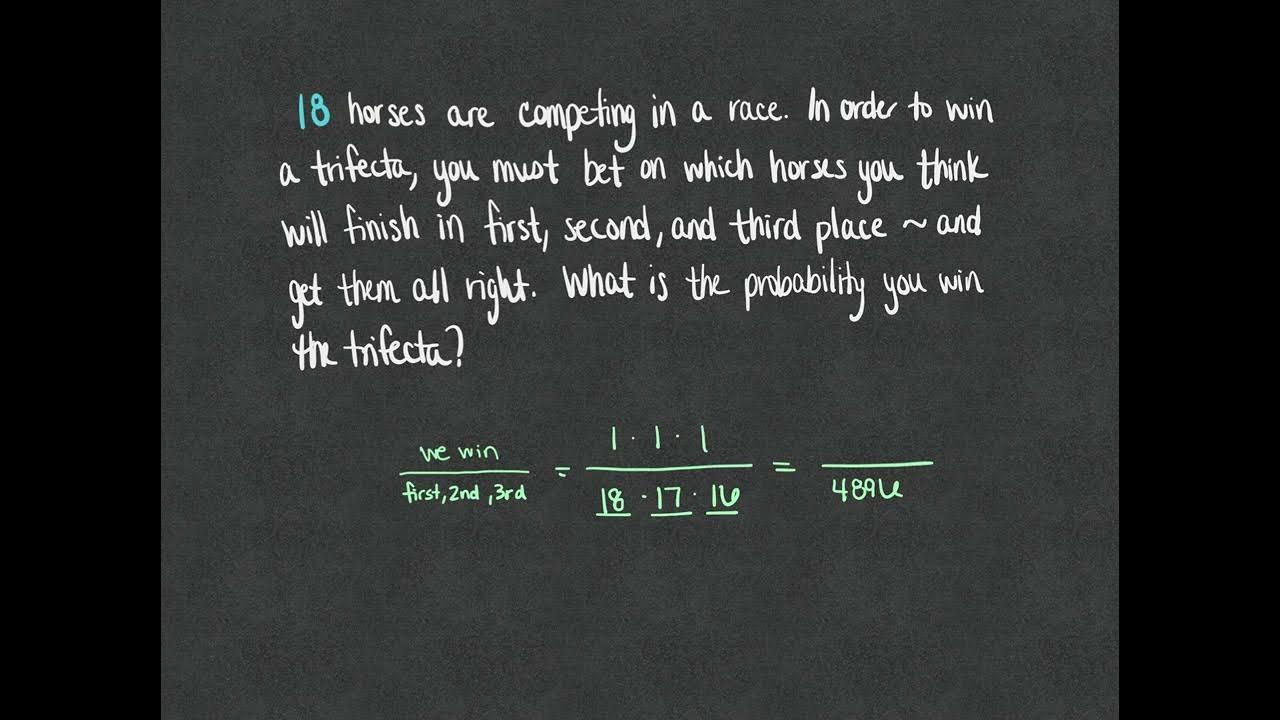 18 horses are competing in a race. In order to win
a trifecta, you must bet on which horses you think
will finish in first, second, and third place ~ and
get them all right. What is the probability you win
the trifecta?
we win
first, 2nd, 3rd
=
1 · 1 · 1
18 · 17 · 16
=
4896